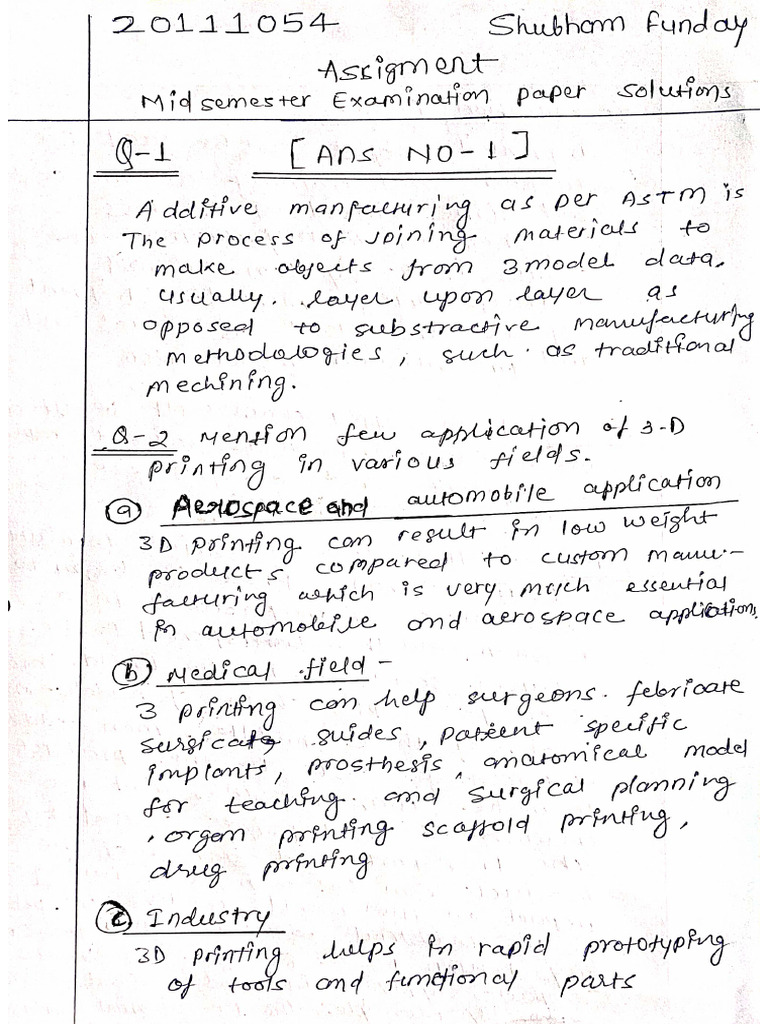 20111054 Shubham Funday
Assigment
Midsemester Examination paper solutions
Q-1 [Ans NO-1]
Additive manfacturing as per ASTM is
The process of joining materials to
make objects from 3model data.
usually. layer upon layer as
opposed to substractive manufacturing
methodologies, such as traditional
mechining.
Q-2 Mension few application of 3-D
printing in various fields.
(a) Aerospace and automobile application
3D printing can result in low weight
products compared to custom manu-
facturing which is very much essential
in automobile and aerospace applications
(b) Medical field -
3 printing can help surgeons. febricate
guides, patient specific
implants, prosthesis, anatomical model
for teaching and surgical planning
, orgem printing scaffold printing,
drug printing
(c) Industry
3D printing helps in rapid prototyping
of tools and functional parts